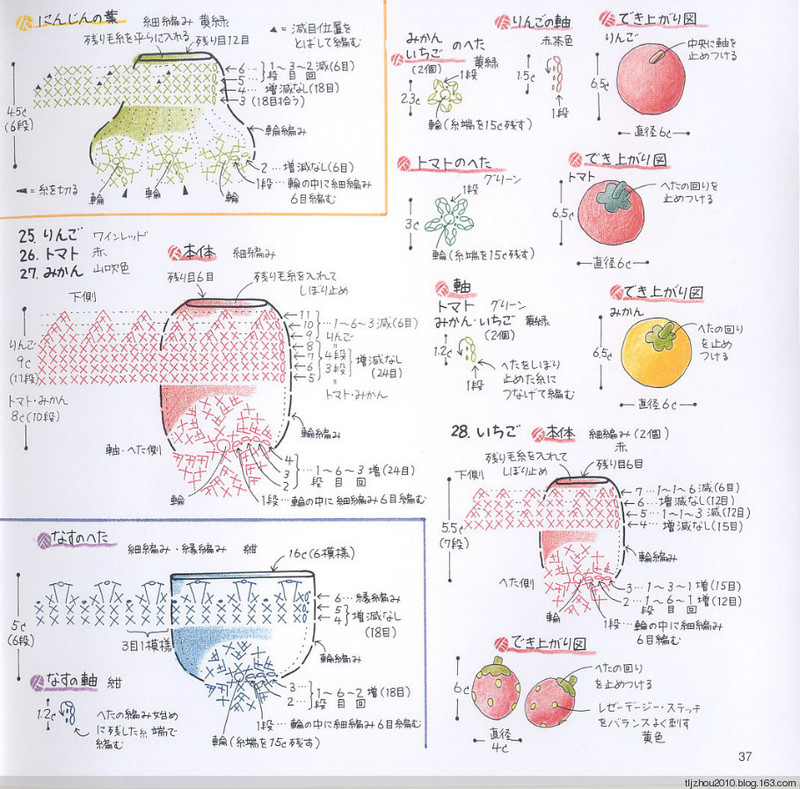 にんじんの葉
細編み 黄緑
残り毛糸を平らに入れる 残り目12目
▲=減目位置をとばして編む
6…1〜3〜2減(6目)
5 段 目 回
4…増減なし(18目)
3(18目拾う)
4.5c
(6段)
輪編み
2…増減なし(6目)
1段…輪の中に細編み
6目編む
=糸を切る
輪 輪 輪
みかん
いちご のへた
(2個) 黄緑
1段
2.3c
輪(糸端を15c残す)
りんごの軸
赤茶色
1.5c
1段
でき上がり図
りんご
中央に軸を
止めつける
6.5c
直径6c
トマトのへた
1段 グリーン
3c
輪(糸端を15c残す)
でき上がり図
トマト
へたの回りを
止めつける
6.5c
直径6c
25. りんご ワインレッド
26. トマト 赤
27. みかん 山吹色
本体 細編み
残り目6目
残り毛糸を入れて
しぼり止め
下側
11
10…1〜6〜3減(6目)
9 りんご 段 目 回
8
7 4段 増減なし
6 3段 (24目)
5
トマト・みかん
りんご
9c
(11段)
トマト・みかん
8c(10段)
輪編み
軸・へた側
4
3…1〜6〜3増(24目)
2 段 目 回
輪
1段…輪の中に細編み6目編む
軸
トマト グリーン
みかん・いちご 黄緑
(2個)
1.2c
1段
へたをしぼり
止めた糸に
つなげて編む
でき上がり図
みかん
へたの回り
を止め
つける
6.5c
直径6c
28. いちご 本体 細編み(2個)
赤
残り毛糸を入れて
しぼり止め
残り目6目
下側
7…1〜1〜6減(6目)
6…増減なし(12目)
5…1〜1〜3減(12目)
4…増減なし(15目)
5.5c
(7段)
輪編み
へた側
3…1〜3〜1増(15目)
2…1〜6〜1増(12目)
段 目 回
輪
1段…輪の中に細編み
6目編む
でき上がり図
6c
直径
4c
へたの回り
を止めつける
レゼーデージー・ステッチ
をバランスよく刺す
黄色
なすのへた
細編み・縁編み 紺
16c(6模様)
6…縁編み
5
4 増減なし
(18目)
5c
(6段)
3目1模様
輪編み
3…1〜6〜2増(18目)
2…段 目 回
1段…輪の中に細編み6目編む
輪(糸端を15c残す)
なすの軸 紺
1.2c
へたの編み始め
に残した糸端で
編む
37
tljzhou2010.blog.163.com